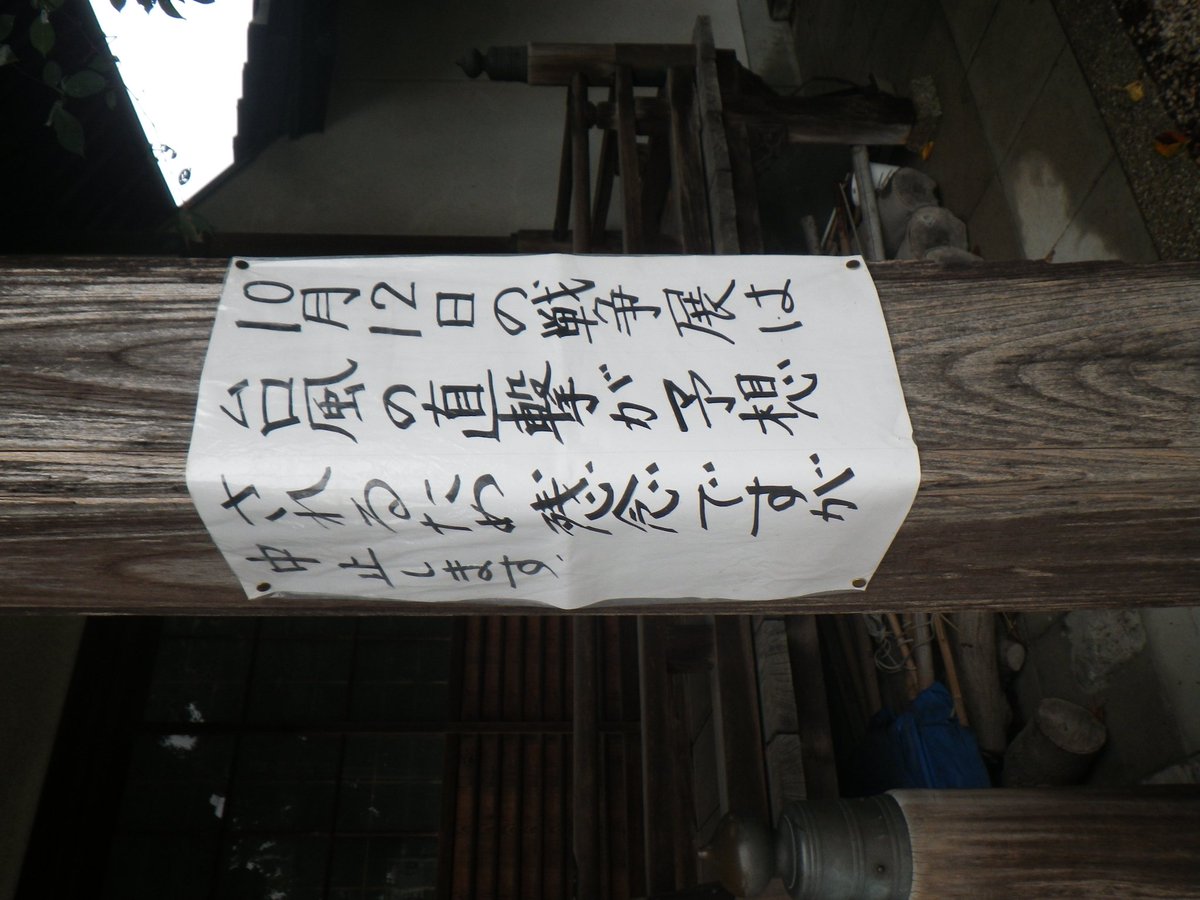 10月12日の戦争展は
台風の直撃が予想
されるため残念ですが
中止します.